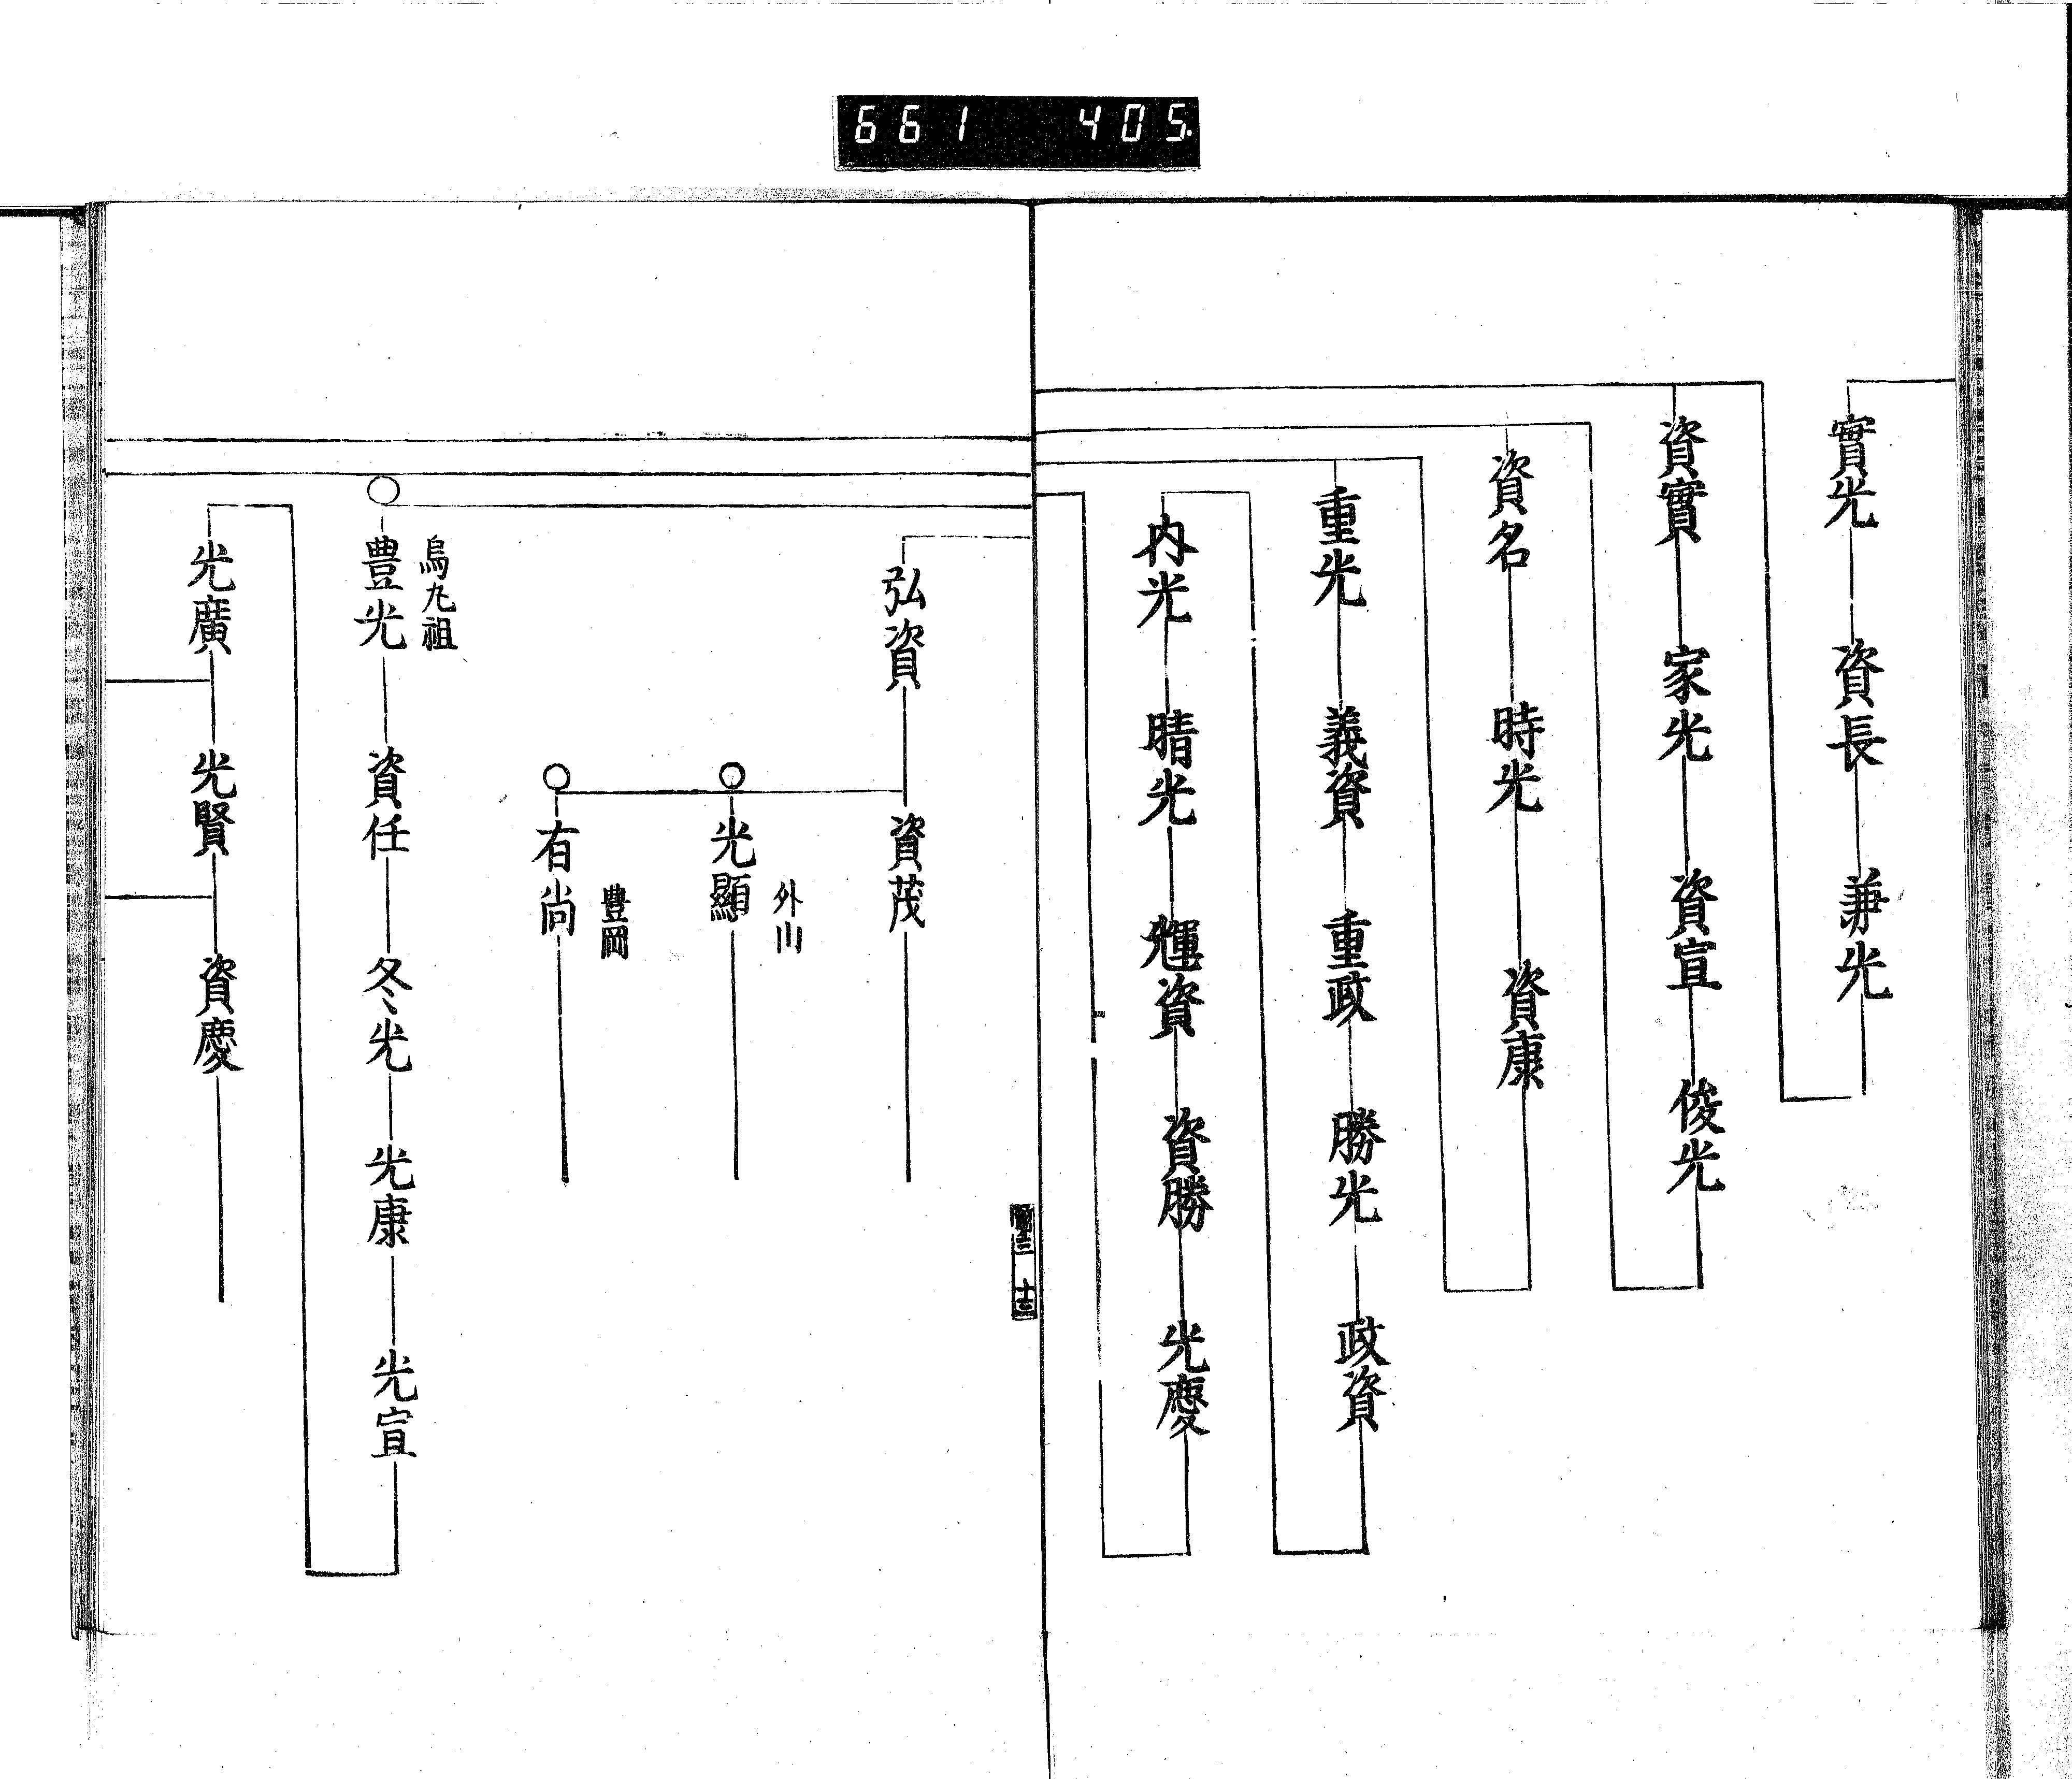 661 405
實光 資長 兼光
資實 家光 資宣 俊光
資名 時光 資康
重光 義資 重政 勝光 政資
内光 晴光 輝資 資勝 光慶
弘資 資茂
外山
光顯
豊岡
有尚
烏丸祖
豊光 資任 冬光 光康 光宣
光廣 光賢 資慶
十三